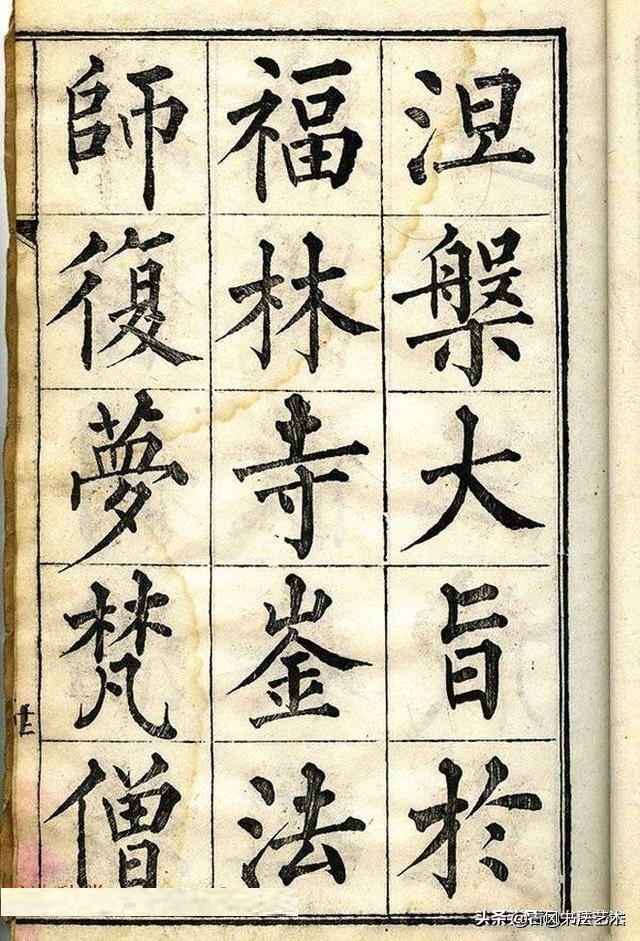 涅槃大旨於
福林寺崟法
師復夢梵僧
头条 @古风书法艺术